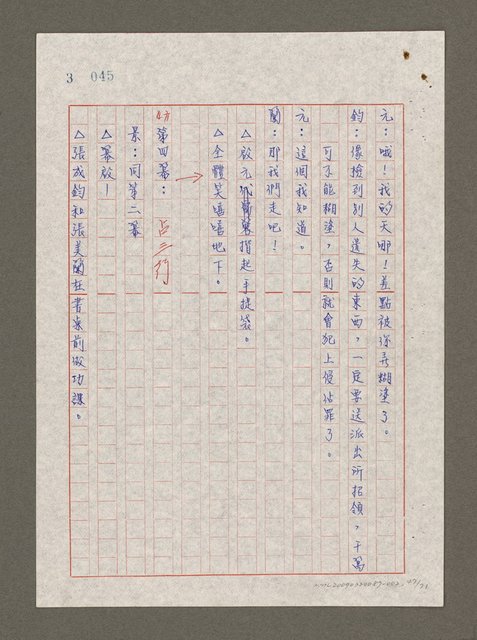 3 045
元：哦！我的天哪！差點被你弄糊塗了。
鈞：像撿到別人遺失的東西，一定要送派出所招領，千萬
可不能糊塗，否則就會犯上侵佔罪了。
元：這個我知道。
蘭：那我們走吧！
△啟元揹起手提袋。
△全體笑嘻嘻地下。
第四幕：
占三行
景：同第二幕
△幕啟！
△張成鈞和張美蘭在書桌前做功課。